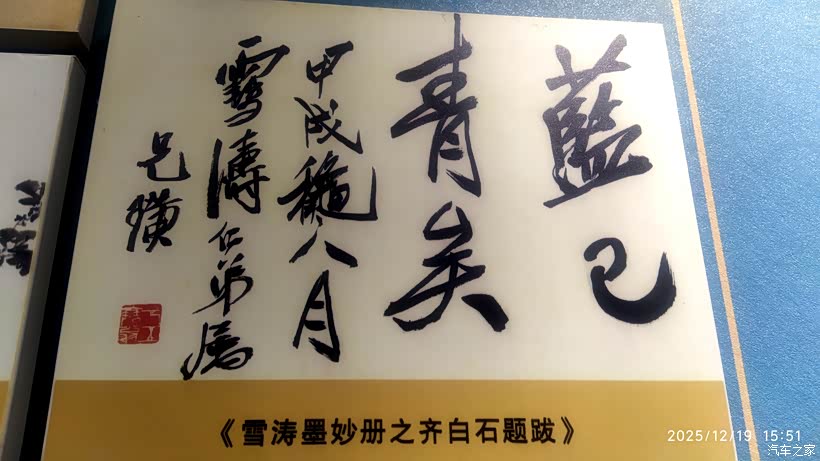 藍已
青矣
甲戌穐八月
雪濤仁弟属
兄璜
《雪涛墨妙册之齐白石题跋》
2025/12/19 15:51
汽车之家